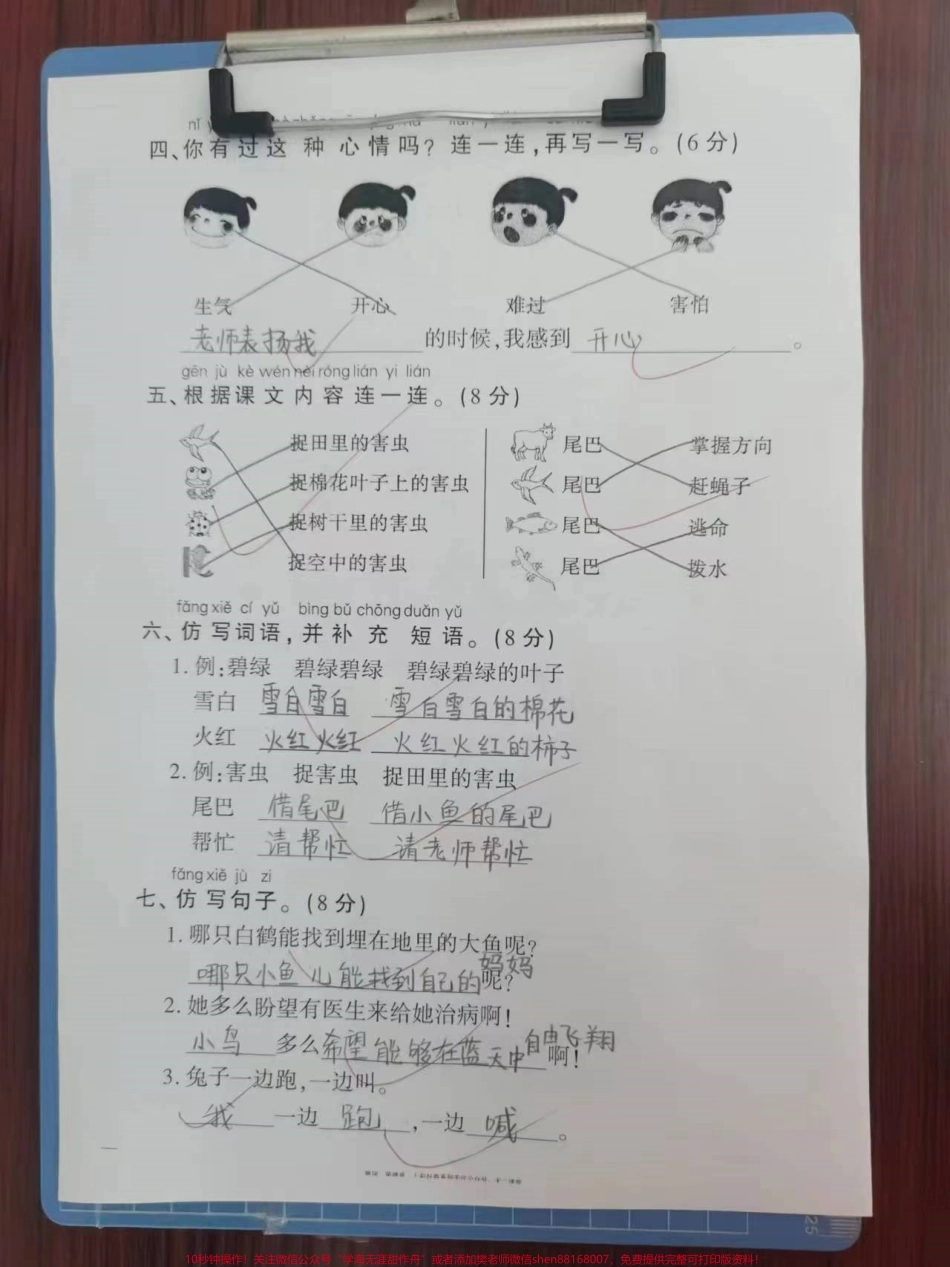 四、你有过这种心情吗？连一连，再写一写。(6分)
生气 开心 难过 害怕
老师表扬我的时候，我感到 开心。
gēn jù kè wén nèi róng lián yi lián
五、根据课文内容连一连。(8分)
捉田里的害虫 尾巴 掌握方向
捉棉花叶子上的害虫 尾巴 赶蝇子
捉树干里的害虫 尾巴 逃命
捉空中的害虫 尾巴 拨水
fǎng xiě cí yǔ bìng bǔ chōng duǎn yǔ
六、仿写词语，并补充短语。(8分)
1. 例：碧绿 碧绿碧绿 碧绿碧绿的叶子
雪白 雪白雪白 雪白雪白的棉花
火红 火红火红 火红火红的柿子
2. 例：害虫 捉害虫 捉田里的害虫
尾巴 借尾巴 借小鱼的尾巴
帮忙 请帮忙 请老师帮忙
fǎng xiě jù zi
七、仿写句子。(8分)
1. 哪只白鹤能找到埋在地里的大鱼呢？
哪只小鱼儿能找到自己的妈妈呢？
2. 她多么盼望有医生来给她治病啊！
小鸟多么希望能够在蓝天中自由飞翔啊！
3. 兔子一边跑，一边叫。
我一边跑，一边喊。
25
10秒钟操作！关注微信公众号“学海无涯甜作舟”或者添加樊老师微信shen88168007，免费提供完整可打印版资料！